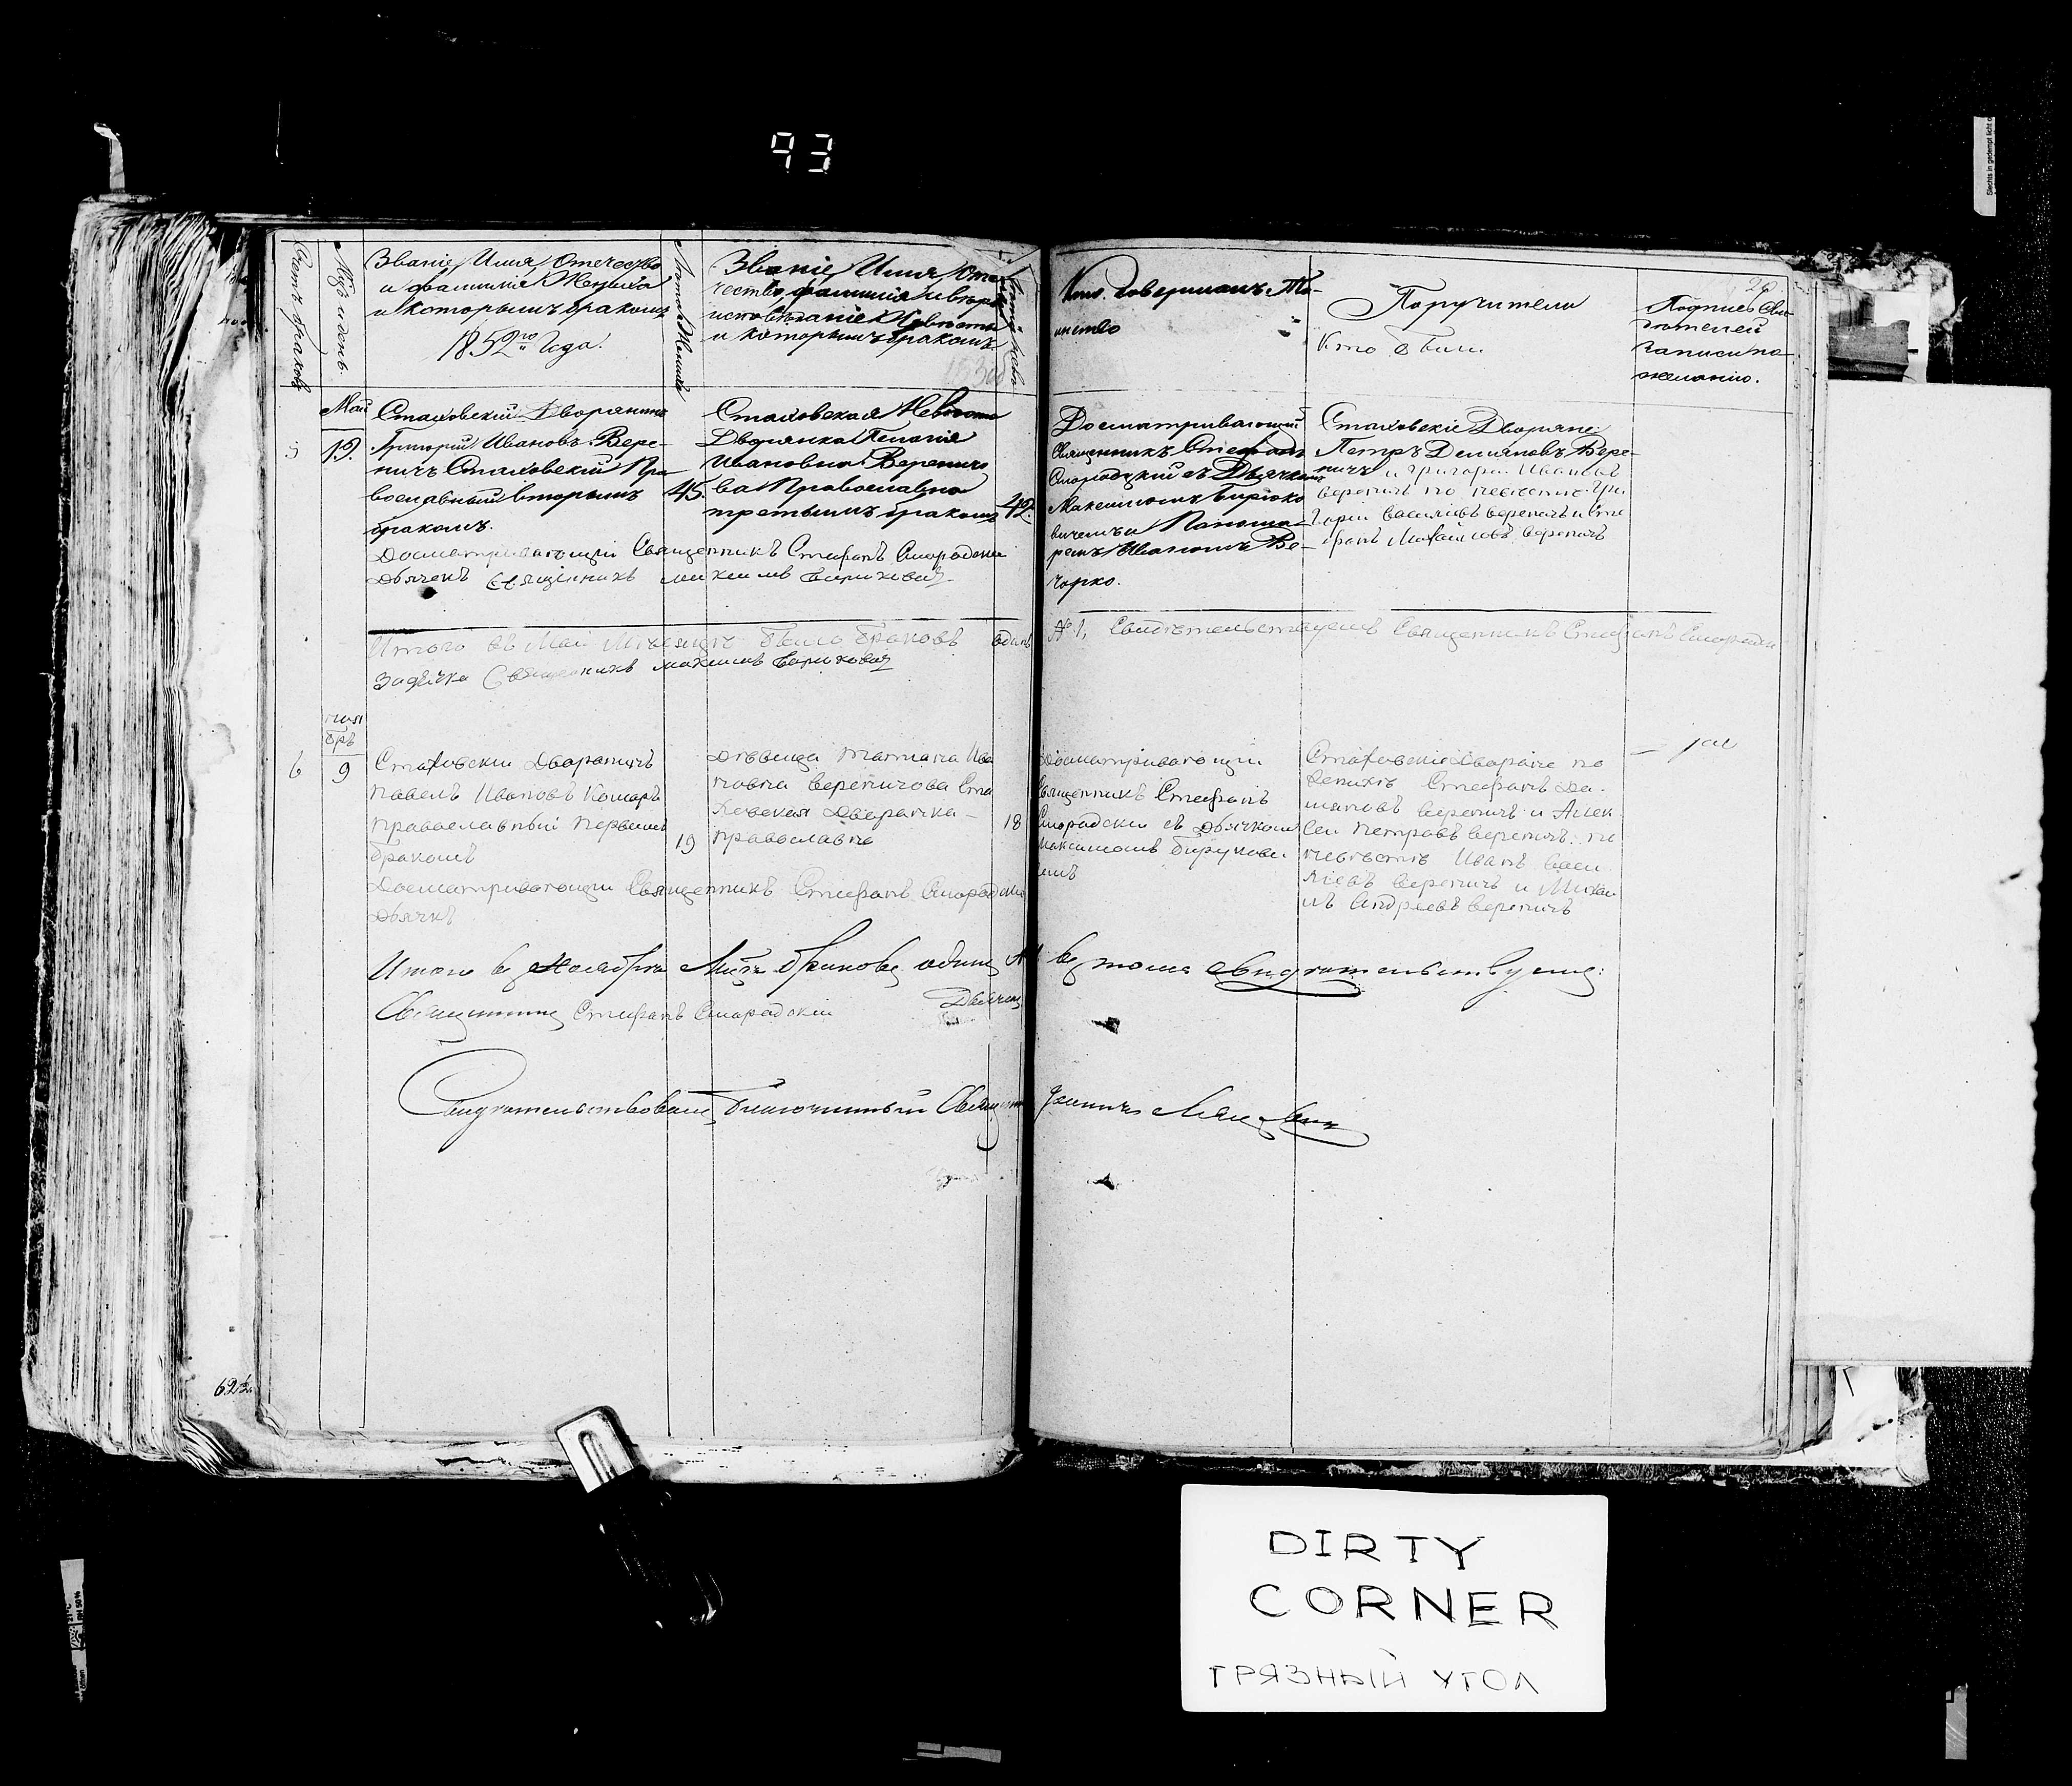 93
Счетъ браковъ
Мцъ и день.
Званіе, Имя, Отечество
и фамилія Жениха
и которымъ бракомъ
1852го года.
Лета Жениха
Званіе, Имя, Оте
чество, фамилія и веро
исповеданіе Невесты
и которымъ бракомъ
Кто совершалъ Та-
инство
Поручители
Кто были
Подпись сви-
детелей
записи по
желанію.
Май
5
19.
Стаховскій Дворянинъ
Григорий Ивановъ Вере-
ничъ Стаховскій Пра
вославный вторымъ
бракомъ.
45.
Стаховская Невеста
Дворянка Пелагія
Ивановна Вереничо
ва Православна
третьимъ бракомъ
42.
Досматривающій
Священникъ Стефанъ
Смородскій съ Дьячкомъ
Максимомъ Бирюко
вичемъ и Понома-
ремъ Иваномъ Ве-
чорко.
Стаховскіе Дворяне:
Петръ Демяновъ Вере-
ничъ и Григорій Ивановъ
вереничъ по невесте: Гри
горій Василіевъ вереничъ и Сте
фанъ Михайловъ вереничъ
Досматривающій Священникъ Стефанъ Смородски
Дьячекъ Священникъ максимъ Бирюковичъ
Итого въ Май Месяце было браковъ одинъ
№ 1, Свидетельствуемъ Священникъ Стефанъ Смородски
За дячка Священникъ максимъ Бирюковичъ
ноя
брь
6
9
Стаховски Дворенинъ
Павелъ Ивановъ Комаръ
православный первымъ
бракомъ
19
Девица Татiана Ива
новна вереничова Ста
ховская Дворанка -
православна
18
Досматривающи
Священникъ Стефанъ
Смородски съ Дьячкомъ
Максимомъ бирукови
емъ
Стаховскіе Дворане по
Женихе Стефанъ Да-
миановъ веренич и Алек
сеи петровъ веренич: по
невесте Иванъ васи
лiевъ веренич и Михаи
лъ Андреевъ веренич
Досматривающи Священникъ Стефанъ Смородски
Дьячкъ
Итого въ Ноябре Мцѣ браковъ одинъ № 1 въ томъ свидѣтельствуемъ:
Священникъ Стефанъ Смородскiи
Дьячекъ
Свидетельствовалъ Благочинный Священ
62
DIRTY
CORNER
ГРЯЗНЫЙ УГОЛ